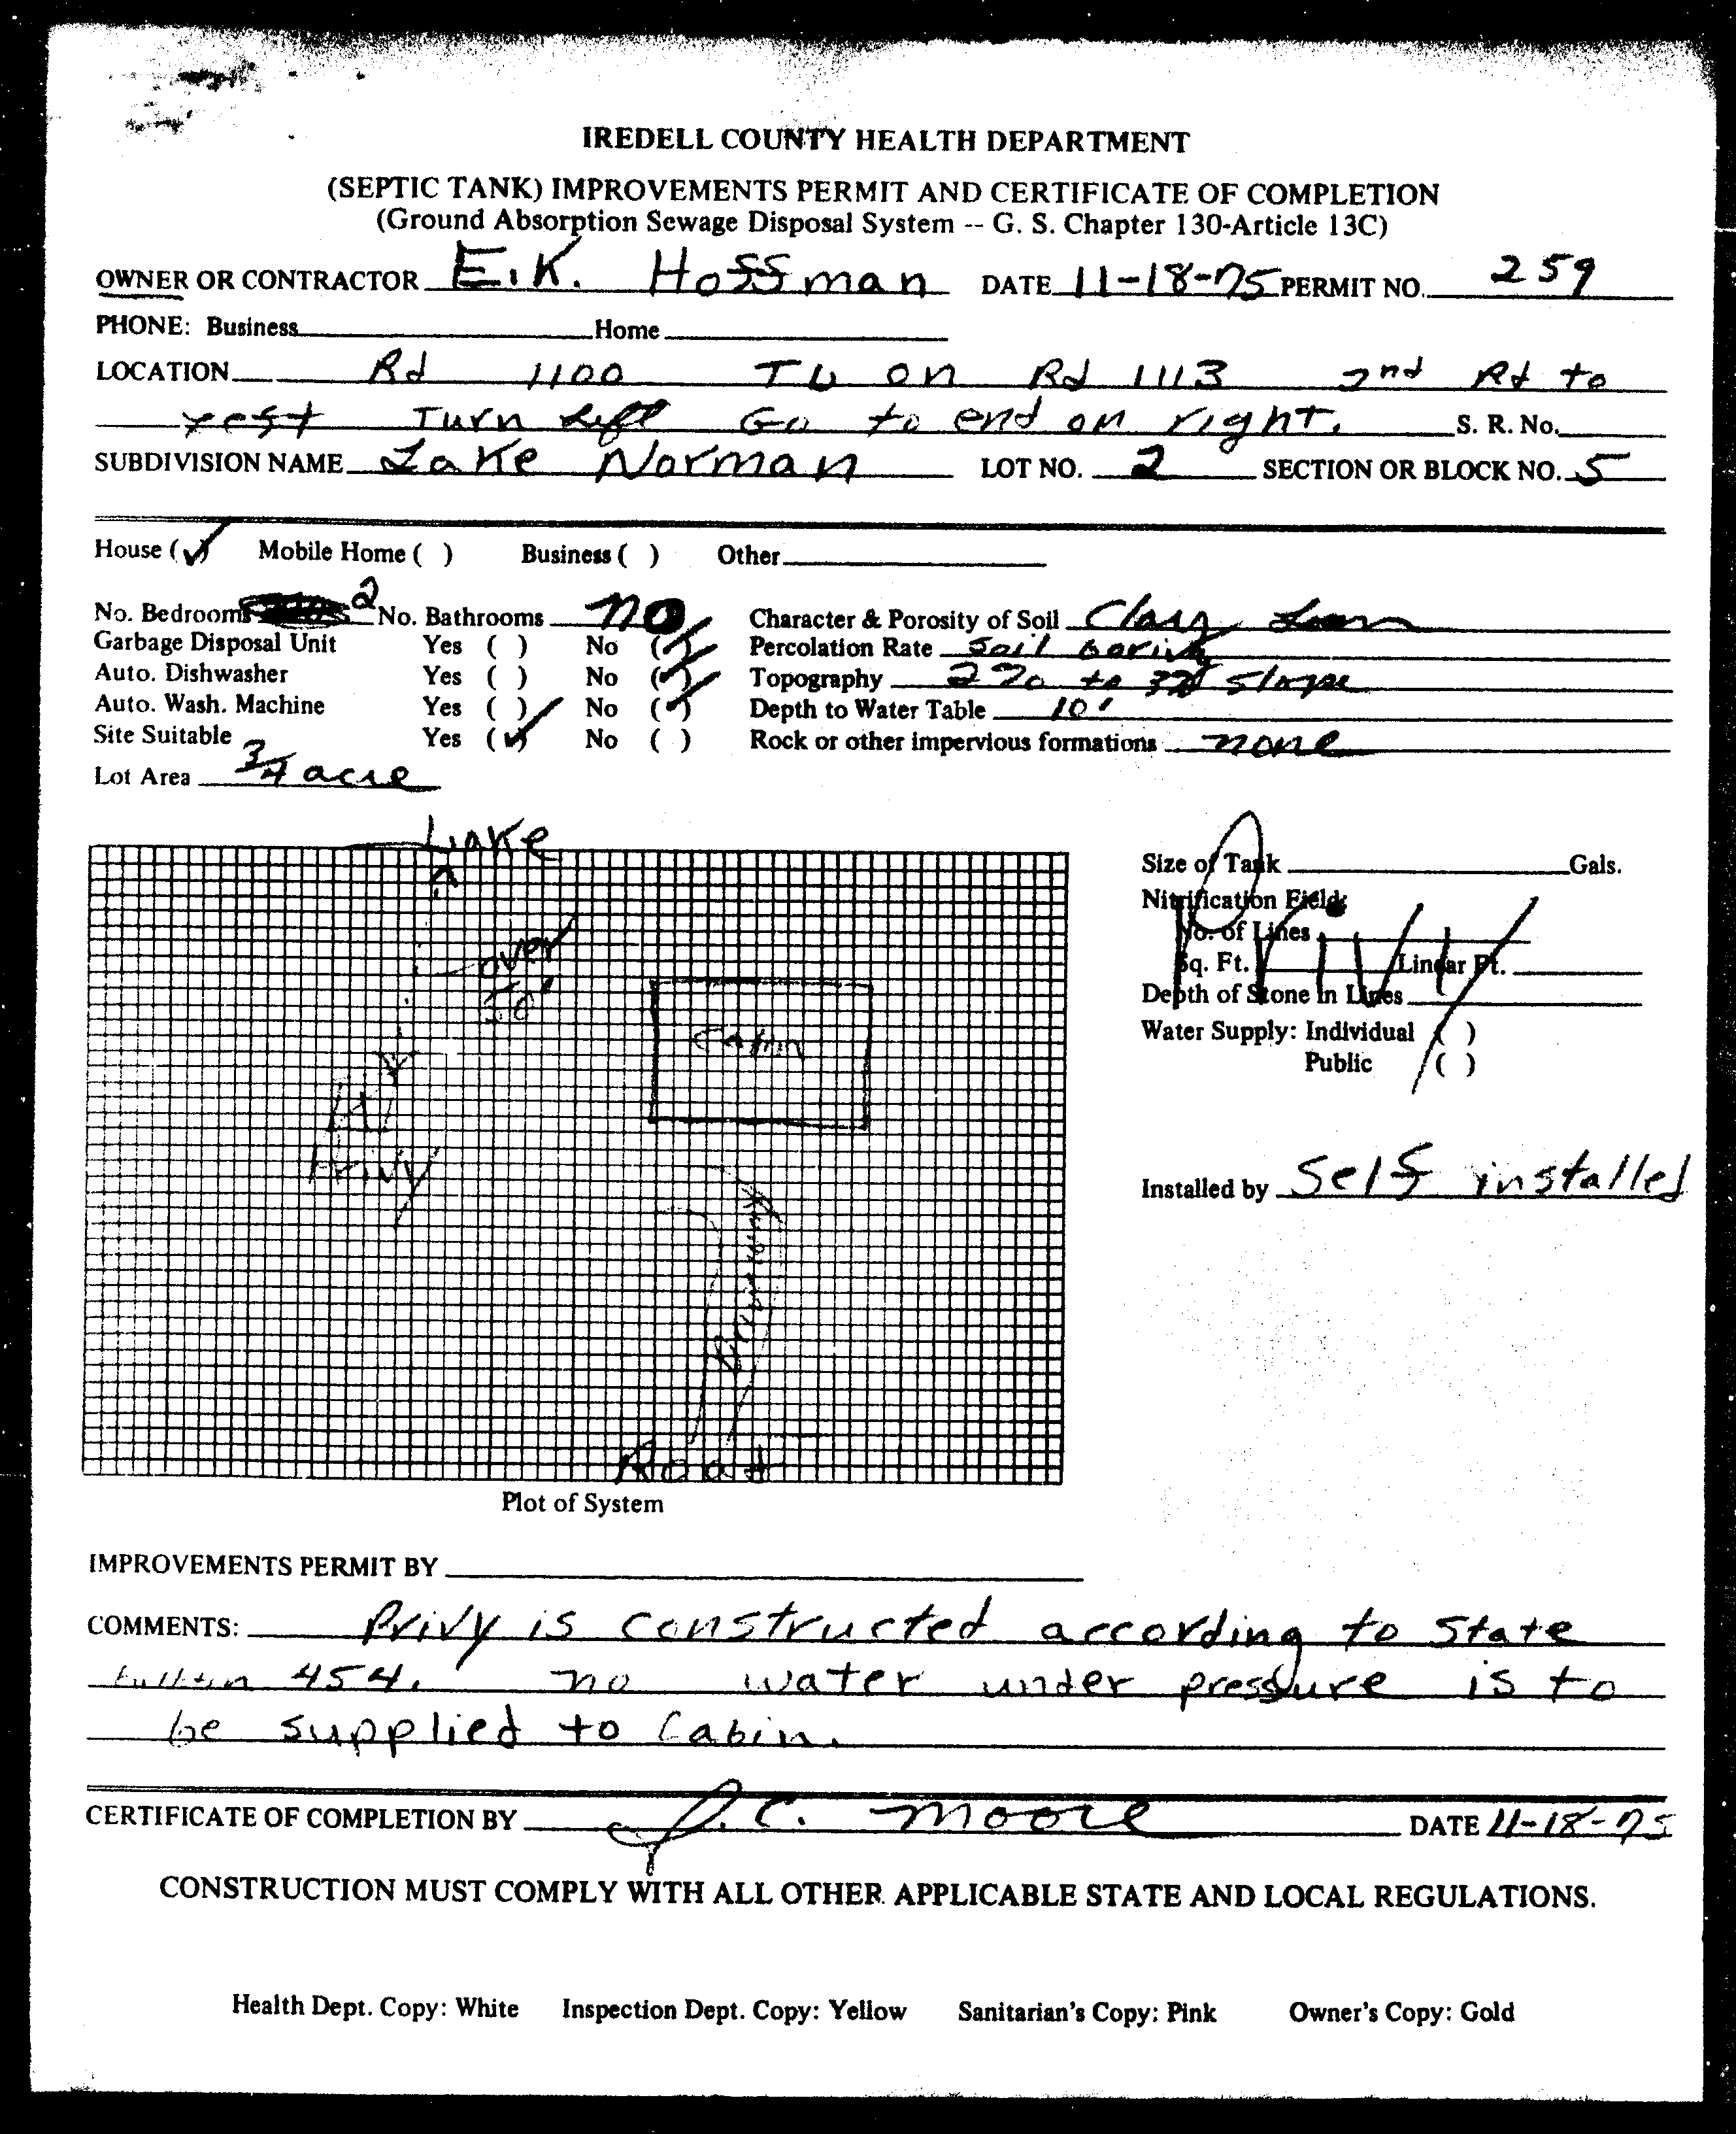 IREDELL COUNTY HEALTH DEPARTMENT
(SEPTIC TANK) IMPROVEMENTS PERMIT AND CERTIFICATE OF COMPLETION
(Ground Absorption Sewage Disposal System -- G. S. Chapter 130-Article 13C)
OWNER OR CONTRACTOR E.K. Hoffman DATE 11-18-75 PERMIT NO. 259
PHONE: Business Home
LOCATION Rd 1100 TL on Rd 1113 2nd Rd to
Turn left Go to end on right. S. R. No.
SUBDIVISION NAME Lake Norman LOT NO. 2 SECTION OR BLOCK NO. 5
House (✓) Mobile Home ( ) Business ( ) Other
No. Bedrooms 2 No. Bathrooms no Character & Porosity of Soil Clay Loam
Garbage Disposal Unit Yes ( ) No (✓) Percolation Rate Soil boring
Auto. Dishwasher Yes ( ) No (✓) Topography 2% to 3% slope
Auto. Wash. Machine Yes ( ) No (✓) Depth to Water Table 10'
Site Suitable Yes (✓) No ( ) Rock or other impervious formations none
Lot Area 3/4 acre
Lake
over
50'
Cabin
Privy
Driveway
Road
Size of Tank Gals.
Nitrification Field:
No. of Lines
Sq. Ft. Linear Ft.
Depth of Stone in Lines
Privy
Water Supply: Individual ( )
Public ( )
Installed by Self installed
Plot of System
IMPROVEMENTS PERMIT BY
COMMENTS: Privy is constructed according to State
454. no water under pressure is to
be supplied to Cabin.
CERTIFICATE OF COMPLETION BY J.C. Moore DATE 11-18-75
CONSTRUCTION MUST COMPLY WITH ALL OTHER APPLICABLE STATE AND LOCAL REGULATIONS.
Health Dept. Copy: White Inspection Dept. Copy: Yellow Sanitarian's Copy: Pink Owner's Copy: Gold